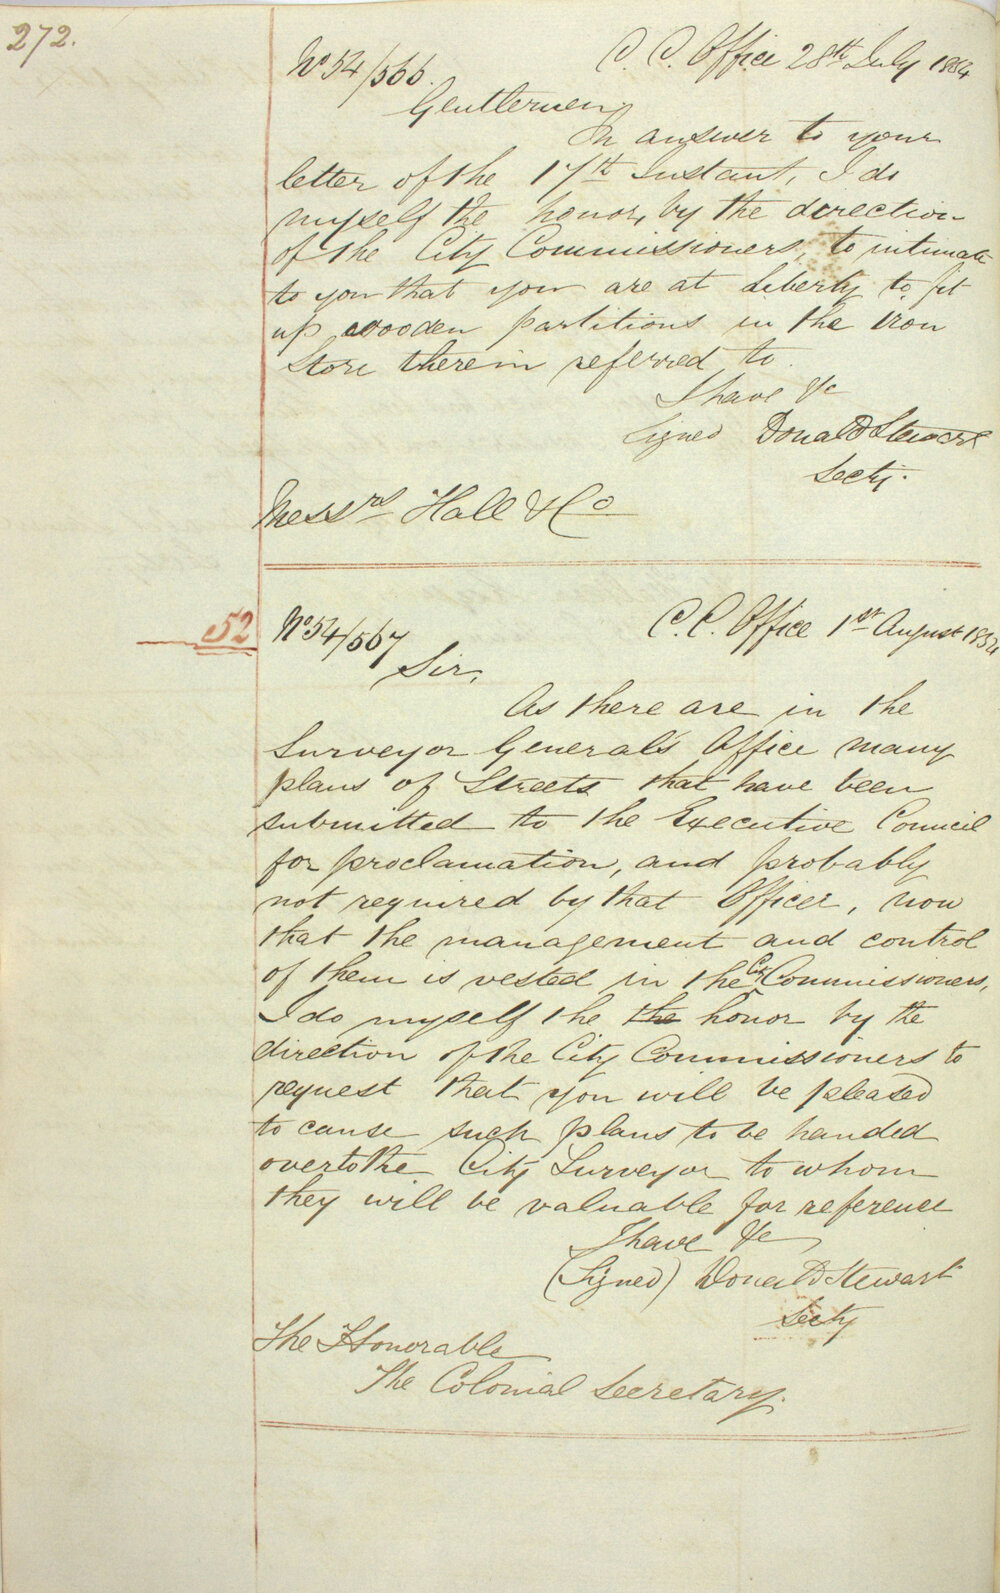 272.
No 54/566.
C. C. Office 28th July 1854
Gentlemen,
In answer to your
letter of the 17th Instant, I do
myself the honor, by the direction
of the City Commissioners, to intimate
to you that you are at Liberty to fit
up wooden partitions in the iron
Store therein referred to.
I have &c
Signed Donald Stewart
Secty.
Messrs Hall & Co
52
No 54/567
C. C. Office 1st August 1854
Sir,
As there are in the
Surveyor General's Office many
plans of Streets that have been
submitted to the Executive Council
for proclamation, and probably
not required by that Officer, now
that the management and control
of them is vested in the Cy Commissioners,
I do myself the the honor by the
direction of the City Commissioners to
request that you will be pleased
to cause such plans to be handed
over to the City Surveyor to whom
they will be valuable for reference
I have &c
(Signed) Donald Stewart
Secty
The Honorable
The Colonial Secretary.